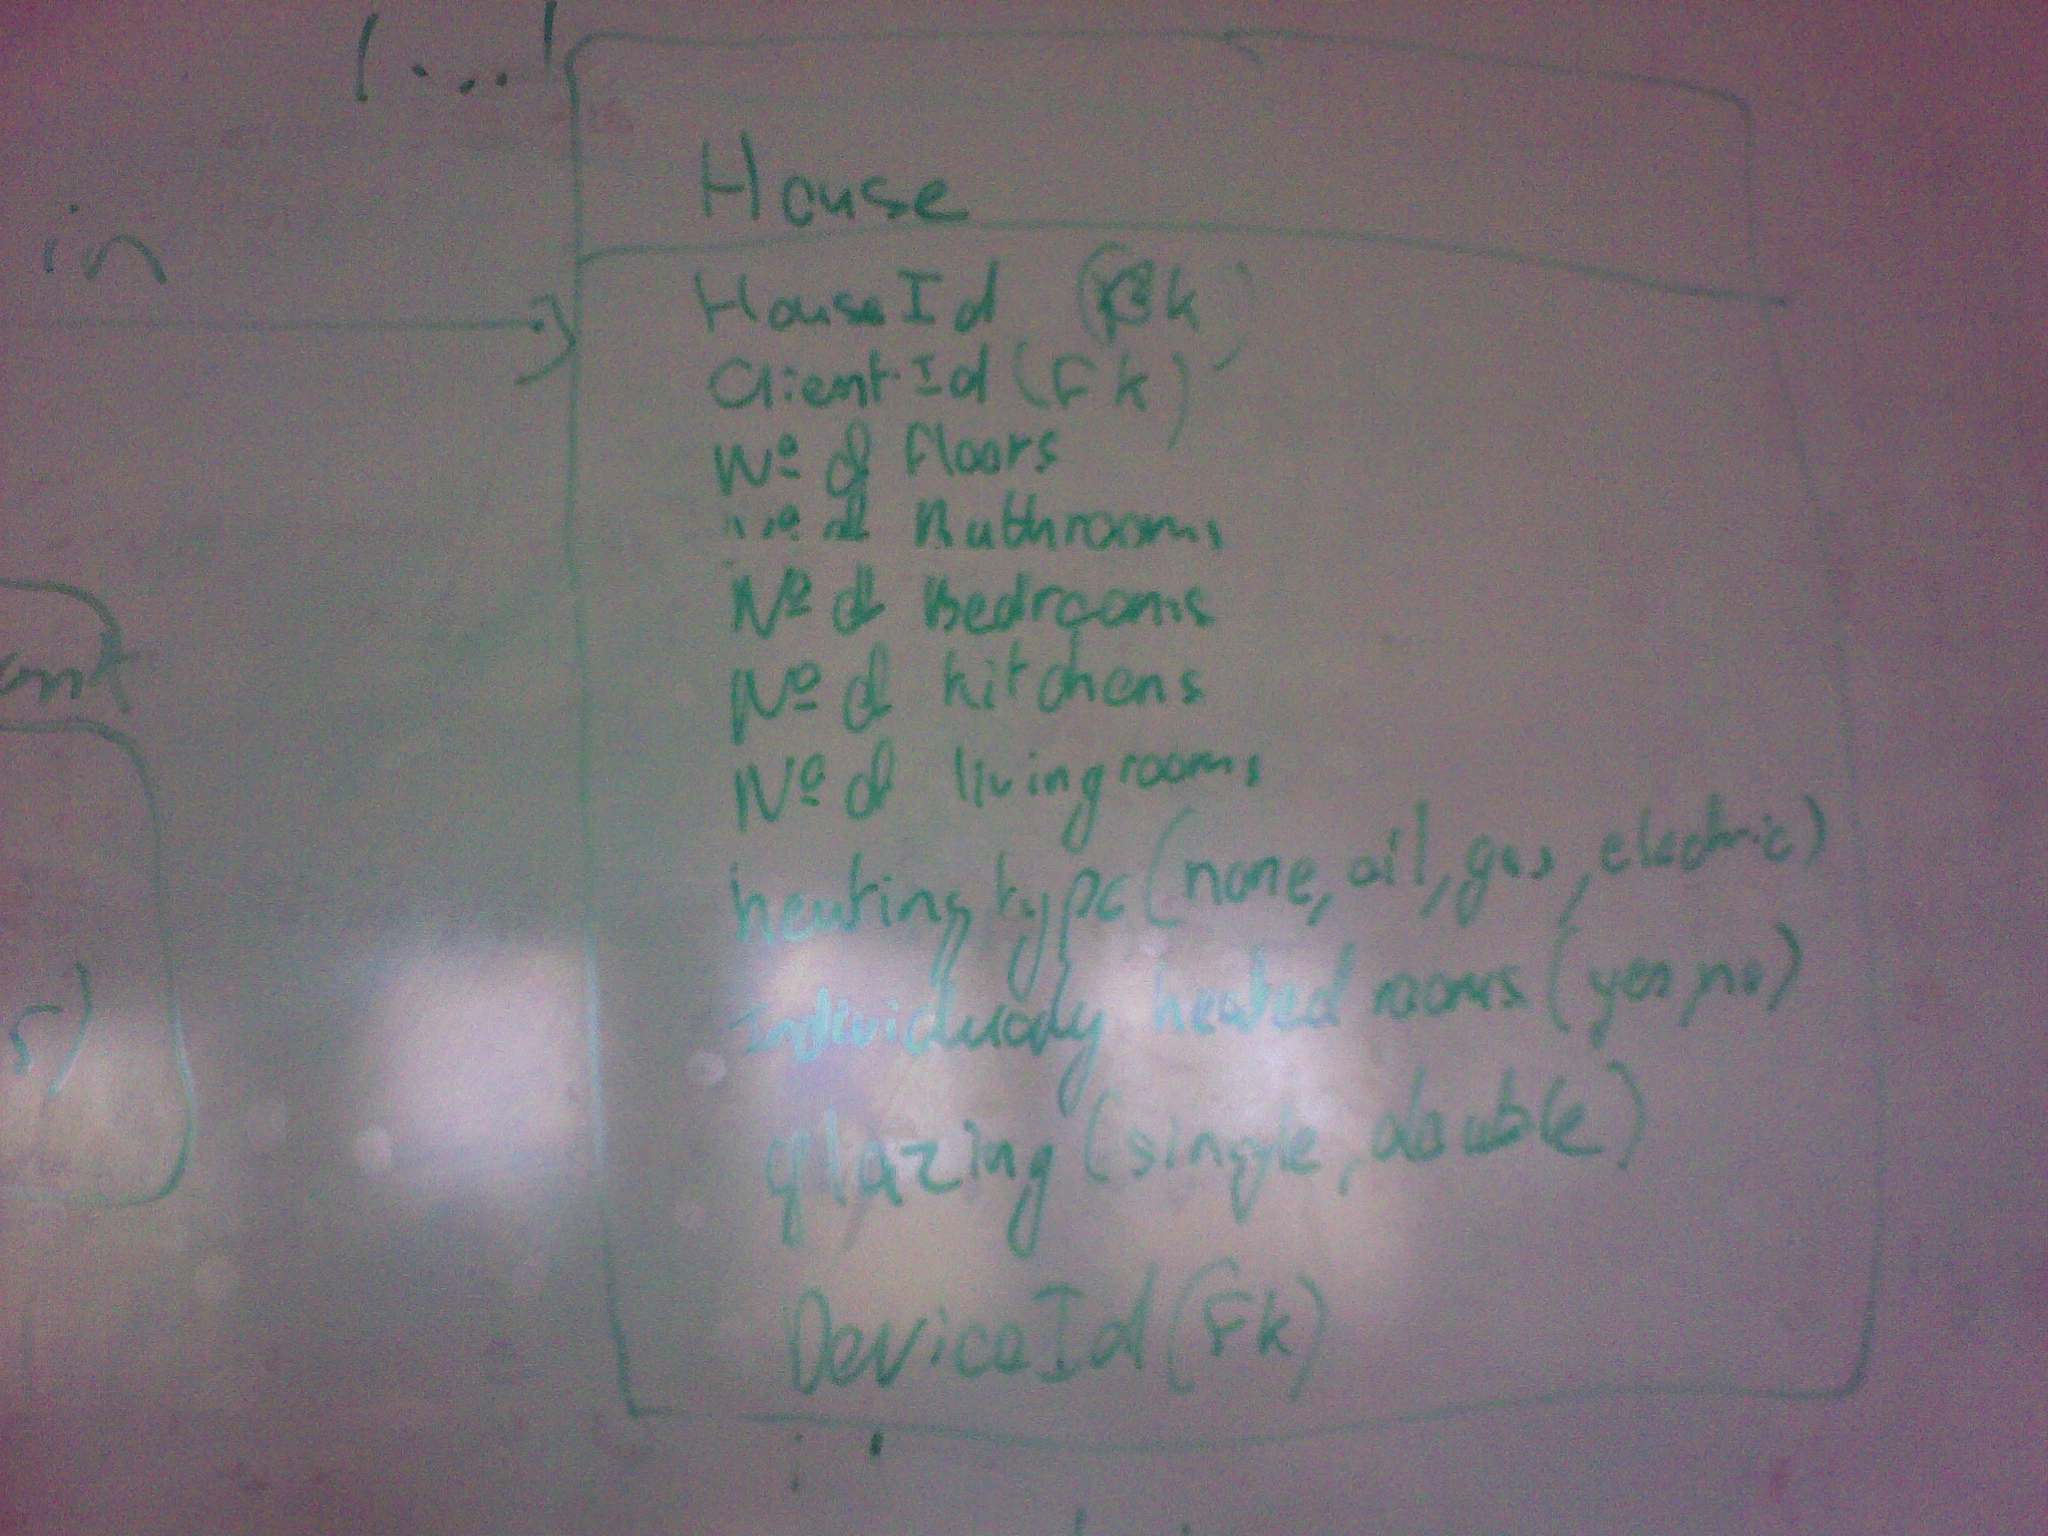 1...1
in
House
HouseId
ClientId (Fk)
Nº of floors
Nº of Bathrooms
Nº of Bedrooms
Nº of kitchens
Nº of livingrooms
heating type (none, oil, gas, electric)
Individually heated rooms (yes, no)
glazing (single, double)
DeviceId (Fk)